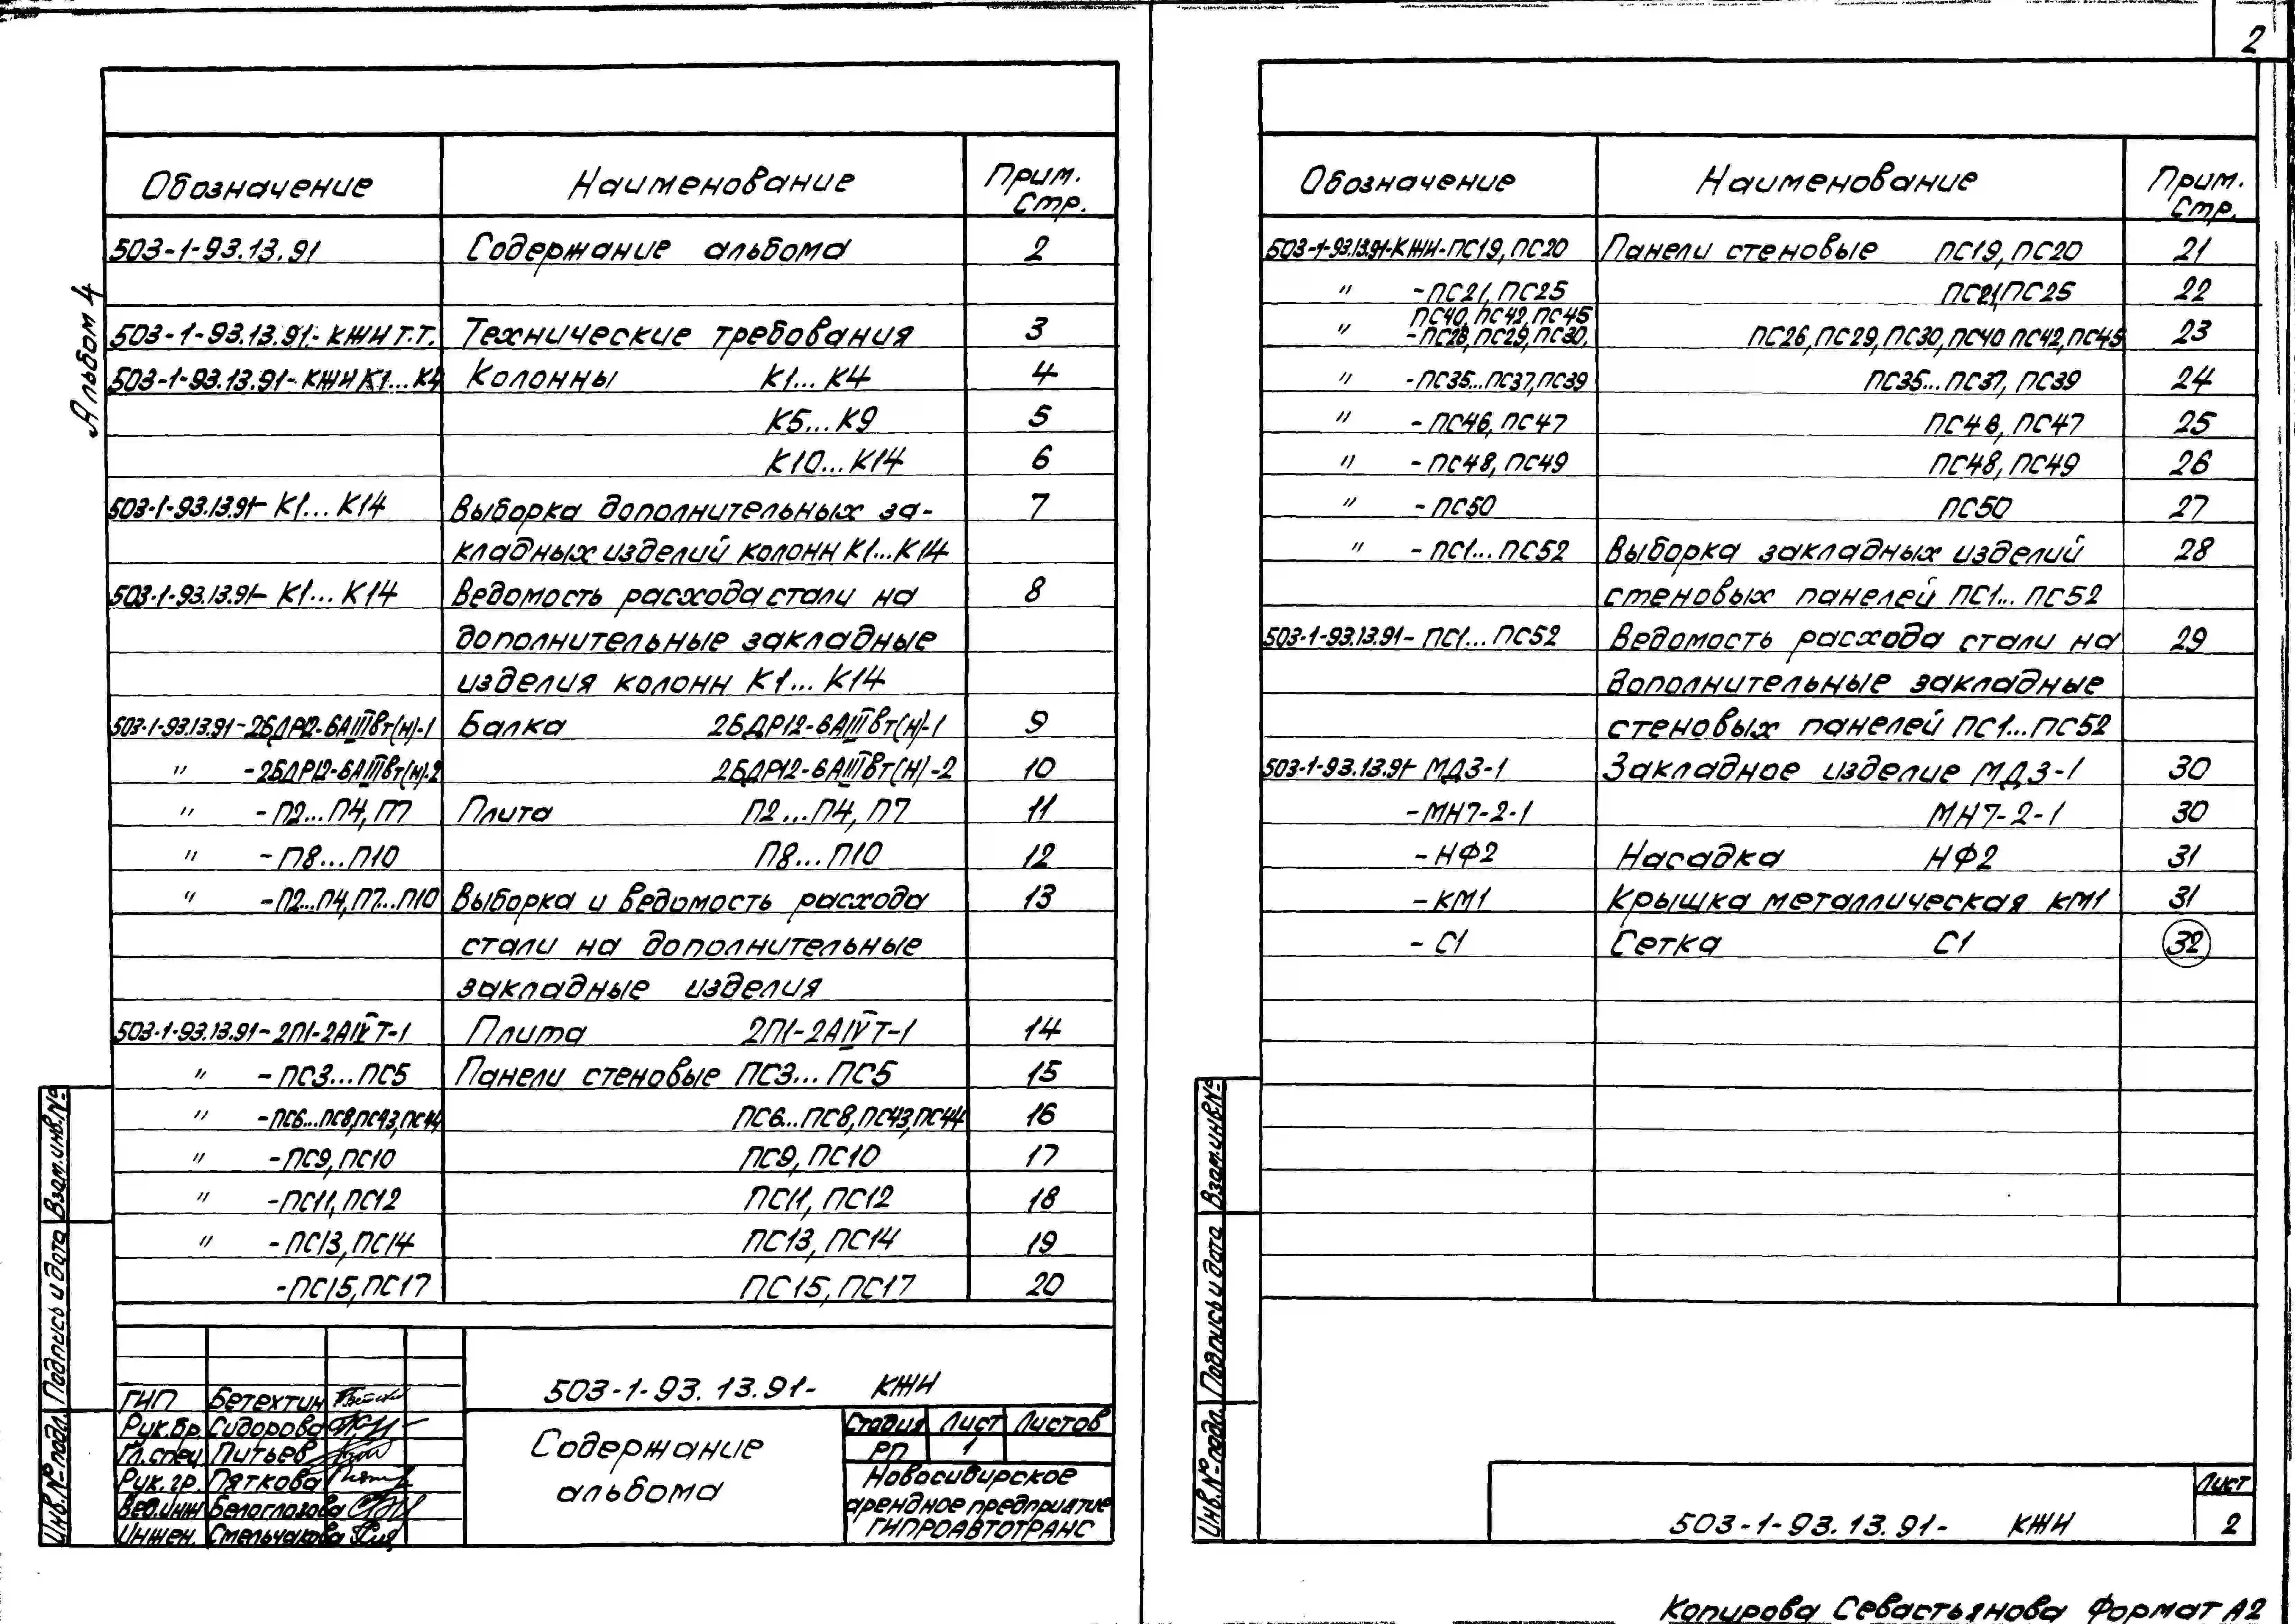 2
Альбом 4
Обозначение Наименование Прим. Стр.
503-1-93.13.91 Содержание альбома 2
503-1-93.13.91.-КЖИ Т.Т. Технические требования 3
503-1-93.13.91-КЖИ К1...К4 Колонны К1...К4 4
К5...К9 5
К10...К14 6
503-1-93.13.91-К1...К14 Выборка дополнительных за- 7
кладных изделий колонн К1...К14
503-1-93.13.91-К1...К14 Ведомость расхода стали на 8
дополнительные закладные
изделия колонн К1...К14
503-1-93.13.91-2БДР12-6АIIIвт(н)-1 Балка 2БДР12-6АIIIвт(н)-1 9
" -2БДР12-6АIIIвт(н)-2 2БДР12-6АIIIвт(н)-2 10
" -П2...П4, П7 Плита П2...П4, П7 11
" -П8...П10 П8...П10 12
" -П2...П4, П7...П10 Выборка и ведомость расхода 13
стали на дополнительные
закладные изделия
503-1-93.13.91-2П1-2АIVТ-1 Плита 2П1-2АIVТ-1 14
" -ПС3...ПС5 Панели стеновые ПС3...ПС5 15
" -ПС6...ПС8, ПС43, ПС44 ПС6...ПС8, ПС43, ПС44 16
" -ПС9, ПС10 ПС9, ПС10 17
" -ПС11, ПС12 ПС11, ПС12 18
" -ПС13, ПС14 ПС13, ПС14 19
-ПС15, ПС17 ПС15, ПС17 20
503-1-93.13.91- КЖИ
ГИП Бетехтин
Рук.бр. Сидорова
Гл.спец Питьев
Рук.гр. Пяткова
Вед.инж Белоглазова
Инжен. Стельчакова
Содержание
альбома
Стадия Лист Листов
РП 1
Новосибирское
арендное предприятие
ГИПРОАВТОТРАНС
Инв.№подл. Подпись и дата Взам.инв.№
Обозначение Наименование Прим. Стр.
503-1-93.13.91-КЖИ-ПС19, ПС20 Панели стеновые ПС19, ПС20 21
" -ПС21, ПС25 ПС21 ПС25 22
ПС40, ПС42, ПС45
" -ПС26, ПС29, ПС30, ПС26, ПС29, ПС30, ПС40 ПС42, ПС45 23
" -ПС35...ПС37, ПС39 ПС35...ПС37, ПС39 24
" -ПС46, ПС47 ПС46, ПС47 25
" -ПС48, ПС49 ПС48, ПС49 26
" -ПС50 ПС50 27
" -ПС1...ПС52 Выборка закладных изделий 28
стеновых панелей ПС1...ПС52
503-1-93.13.91-ПС1...ПС52 Ведомость расхода стали на 29
дополнительные закладные
стеновых панелей ПС1...ПС52
503-1-93.13.91-МД3-1 Закладное изделие МД3-1 30
-МН7-2-1 МН7-2-1 30
-НФ2 Насадка НФ2 31
-КМ1 Крышка металлическая КМ1 31
-С1 Сетка С1 32
Инв.№подл. Подпись и дата Взам.инв№
503-1-93.13.91- КЖИ
Лист
2
Копирова Севастьянова Формат А2